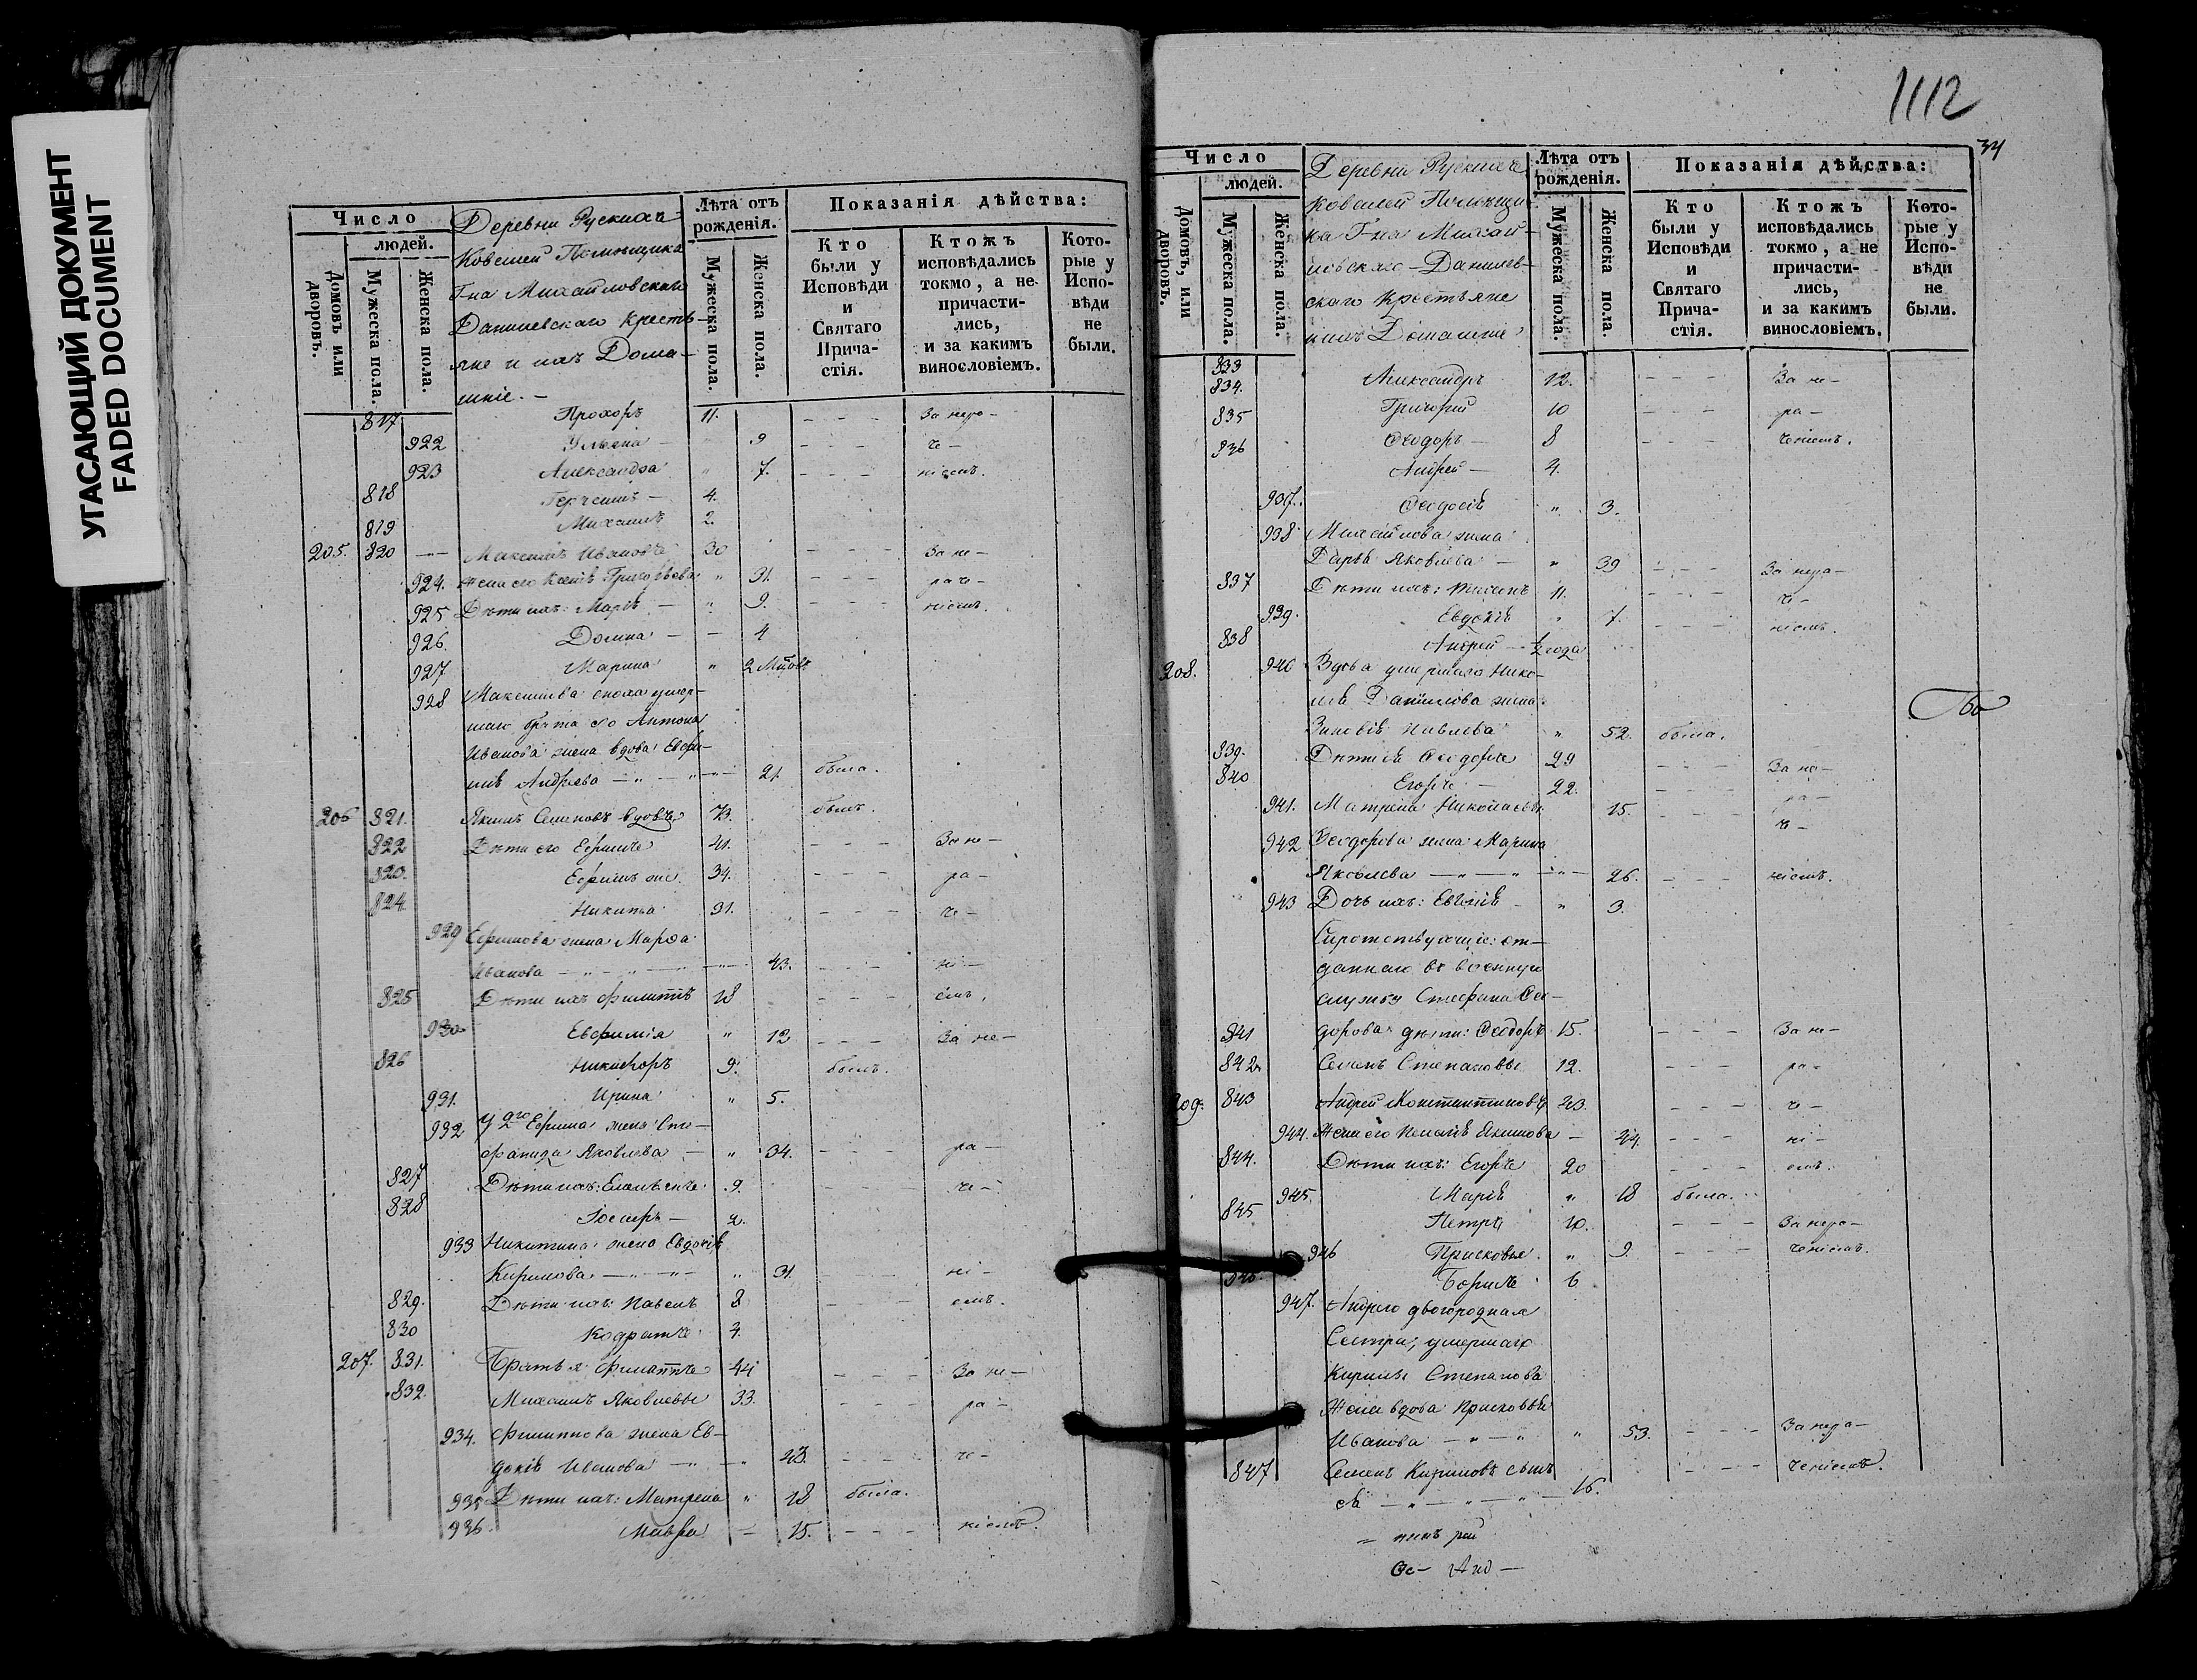 УГАСАЮЩИЙ ДОКУМЕНТ
FADED DOCUMENT
Число
людей.
Домовъ или дворовъ.
Мужеска пола.
Женска пола.
Деревни Рускихъ
Ковалей Помѣщика
Г-на Михайловскаго
Данилевскаго Кресть-
яне и ихъ Дома-
шніе. -
Лѣта отъ рожденія.
Мужеска пола.
Женска пола.
Показанія дѣйства:
Кто были у Исповѣди и Святаго Прича- стія.
Ктожъ исповѣдались токмо, а не причасти- лись, и за какимъ винословіемъ.
Кото- рые у Испо- вѣди не были.
817 Прохоръ 11. - - - За нера-
922 Ульяна - 9 - - - че-
923 Александра " 7. - - - ніемъ.
818 - 4.
819 Михаилъ 2.
205. 820 Максимъ Ивановъ 30 - - - За не-
924. Жена его Ксенія Григорьева " 31. - - - раче-
925 Дѣти ихъ: Марія - " 9. - - - ніемъ.
926. Домна - - 4
927 Марина " 2
928 Максимова сноха умер-
шаго брата его Антона
Иванова жена вдова Евфи-
мія Андреева - " - " - 21. была.
206 821. Якимъ Семеновъ вдовъ 73. былъ.
822 Дѣти его Ефимъ 41. - - - За не-
823. Ефимъ же 34. - - - ра-
824 Никита 31. - - - че-
929 Ефимова жена Марѳа
Иванова - " - " - 43. - - - ні-
825 Дѣти ихъ Филиппъ 18 - - - емъ.
930 Евфимія " 12 - - - За не-
826 Никифоръ 9. былъ.
931. Ирина " 5.
932 У 2го Ефима жена Сте-
фанида Яковлева - " 34. - - - ра-
827 Дѣти ихъ: Емельянъ 9. - - - че-
828 Іосифъ - 2.
933 Никитина жена Евдокія
Кирилова - " - " - " 31. - - - ні-
829. Дѣти ихъ: Павелъ 8 - - - емъ.
830 Кодратъ 4.
207. 831. Братья: Филиппъ 44 - - - За не-
832. Михаилъ Яковлевы 33. - - - ра-
934. Филиппова жена Ев-
докія Иванова - " - 43. - - - че-
935 Дѣти ихъ: Матрена " 18 была.
936. Мавра - 15. - - - ніемъ.
1112
34
Число
людей.
Домовъ, или дворовъ.
Мужеска пола.
Женска пола.
Деревни Рускихъ
Ковалей Помѣщи-
ка Г-на Михай-
ловскаго-Данилев-
скаго Крестьяне
ихъ Домашніе
Лѣта отъ рожденія.
Мужеска пола.
Женска пола.
Показанія дѣйства:
Кто были у Исповѣди и Святаго Прича- стія.
Ктожъ исповѣдались токмо, а не причасти- лись, и за какимъ винословіемъ.
Кото- рые у Испо- вѣди не были.
833
834. Александръ 12. - - - За не-
835 Григорій 10 - - - ра-
836 Ѳеодоръ - 8 - - - ченіемъ.
Андрей - 4.
937. Ѳеодосія " 3.
938 Михайлова жена
Дарья Яковлева - " 39 - - - За нера-
837 Дѣти ихъ: 11. - - - че-
939. Евдокія " 7. - - - ніемъ.
838 Андрей - 1/2 года
208. 940 Вдова умершаго Нико-
лая Данилова жена
Зиновія Павлова " 52. была.
839. Дѣти ея Ѳеодоръ 29 - - - За не-
840 Егоръ - 22. - - - ра-
941. Матрена Николаева 15. - - - че-
942 Ѳеодорова жена Марина
Яковлева - " - " - 26. - - - ніемъ.
943 Дочь ихъ: Евгенія - " 3.
Сиротствующіе: от-
даннаго въ военную
службу Стефана Ѳео-
841 дорова дѣти: Ѳеодоръ 15. - - - За не-
842 Семенъ Степановы 12. - - - ра-
209. 843 Андрей Константиновъ 43. - - - че-
944. Жена его Якимова - 44 - - - ні-
844. Дѣти ихъ: Егоръ 20 - - - емъ.
945. Марія " 18 была.
845 Петръ 10. - - - За нера-
946 Присковья " 9. - - - ченіемъ.
846. Борисъ 6
947. Андрея двоюродная
Сестра, умершаго
Кирила Степанова
Жена вдова Присковья
Иванова - " - " " 53. - - - За нера-
847 Семенъ Кириловъ сынъ - - - ченіемъ.
ея - " - " - " - 16.